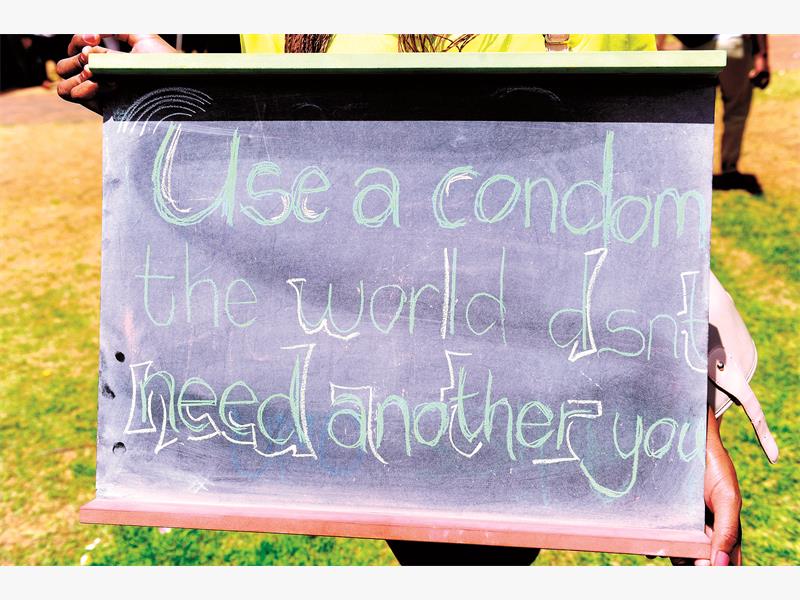 Use a condom
the world dsnt
need another you